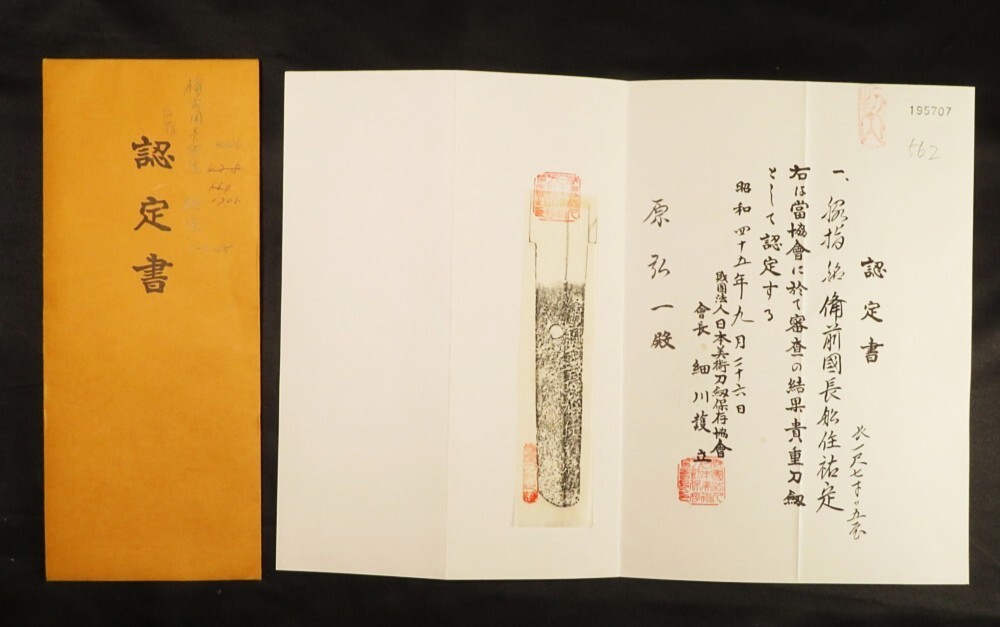 認定書
195707
562
認定書
一、脇指 銘 備前國長舩住祐定
長一尺七寸〇五厘
右は當協會に於て審査の結果貴重刀劔
として認定する
昭和四十五年九月二十六日
財團法人日本美術刀劔保存協會
會長 細川護立
原弘一殿